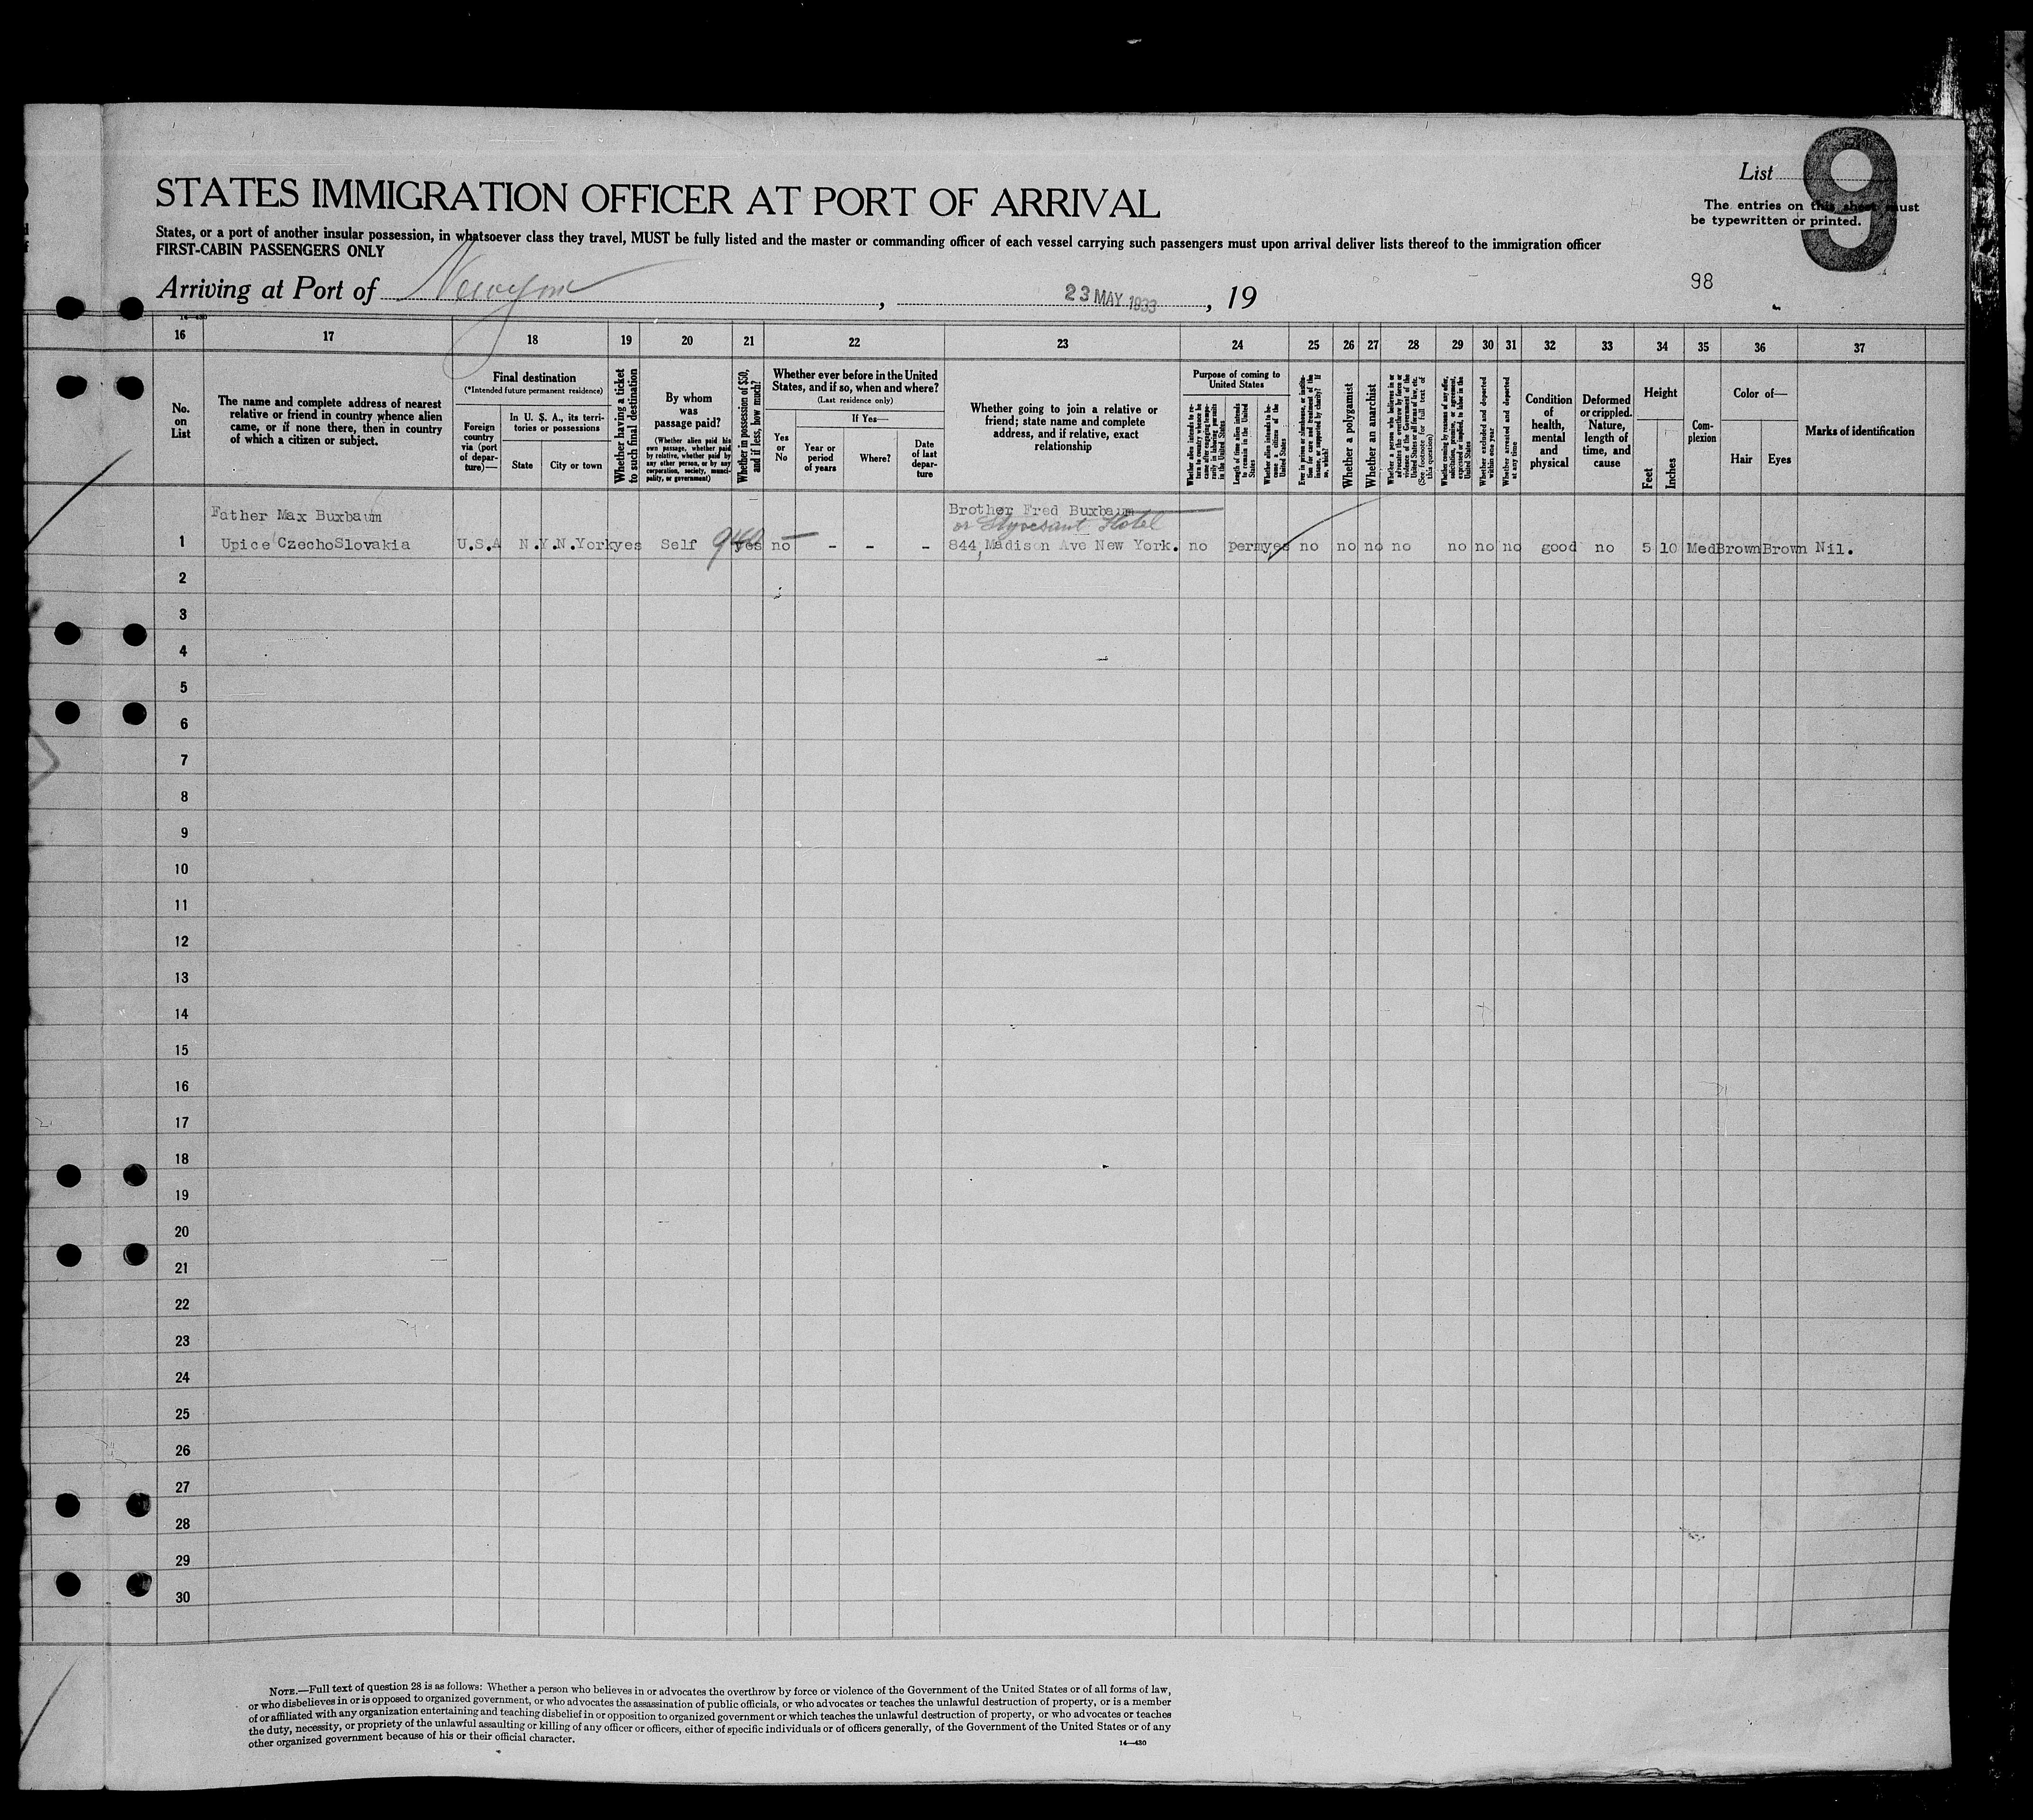 List 9
The entries on this sheet must
be typewritten or printed.
STATES IMMIGRATION OFFICER AT PORT OF ARRIVAL
States, or a port of another insular possession, in whatsoever class they travel, MUST be fully listed and the master or commanding officer of each vessel carrying such passengers must upon arrival deliver lists thereof to the immigration officer
FIRST-CABIN PASSENGERS ONLY
98
Arriving at Port of New York, 23 MAY 1933, 19
14—430
16 17 18 19 20 21 22 23 24 25 26 27 28 29 30 31 32 33 34 35 36 37
No.
on
List
The name and complete address of nearest
relative or friend in country whence alien
came, or if none there, then in country
of which a citizen or subject.
Final destination
(*Intended future permanent residence)
Foreign
country
via (port
of depar-
ture)—
In U. S. A., its terri-
tories or possessions
State
City or town
Whether having a ticket
to such final destination
By whom
was
passage paid?
(Whether alien paid his
own passage, whether paid
by relative, whether paid by
any other person, or by any
corporation, society, munici-
pality, or government)
Whether in possession of $50,
and if less, how much?
Whether ever before in the United
States, and if so, when and where?
(Last residence only)
Yes
or
No
If Yes—
Year or
period
of years
Where?
Date
of last
depar-
ture
Whether going to join a relative or
friend; state name and complete
address, and if relative, exact
relationship
Purpose of coming to
United States
Whether alien intends to re-
turn to country whence he
came after engaging tempo-
rarily in laboring pursuits
in the United States
Length of time alien intends
to remain in the United
States
Whether alien intends to be-
come a citizen of the
United States
Ever in prison or almshouse, or institu-
tion for care and treatment of the
insane, or supported by charity? If
so, which?
Whether a polygamist
Whether an anarchist
Whether a person who believes in or
advocates the overthrow by force or
violence of the Government of the
United States or all forms of law, etc.
(See footnote for full text of
this question)
Whether coming by reason of any offer,
solicitation, promise, or agreement,
expressed or implied, to labor in the
United States
Whether excluded and deported
within one year
Whether arrested and deported
at any time
Condition
of
health,
mental
and
physical
Deformed
or crippled.
Nature,
length of
time, and
cause
Height
Feet
Inches
Com-
plexion
Color of—
Hair
Eyes
Marks of identification
Father Max Buxbaum
Brother Fred Buxbaum
or Styvesant Hotel
1 Upice CzechoSlovakia U.S.A N.Y. N.York yes Self yes no - - - 844, Madison Ave New York. no perm yes no no no no no no no good no 5 10 Med Brown Brown Nil.
2
3
4
5
6
7
8
9
10
11
12
13
14
15
16
17
18
19
20
21
22
23
24
25
26
27
28
29
30
NOTE.—Full text of question 28 is as follows: Whether a person who believes in or advocates the overthrow by force or violence of the Government of the United States or of all forms of law,
or who disbelieves in or is opposed to organized government, or who advocates the assassination of public officials, or who advocates or teaches the unlawful destruction of property, or is a member
of or affiliated with any organization entertaining and teaching disbelief in or opposition to organized government or which teaches the unlawful destruction of property, or who advocates or teaches
the duty, necessity, or propriety of the unlawful assaulting or killing of any officer or officers, either of specific individuals or of officers generally, of the Government of the United States or of any
other organized government because of his or their official character.
14—430